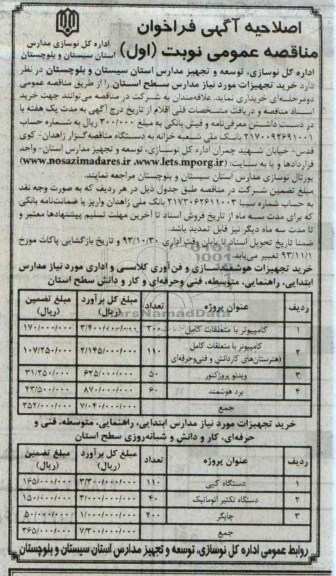 اصلاحیه آگهی فراخوان
مناقصه عمومی نوبت (اول)
اداره کل نوسازی مدارس
استان سیستان و بلوچستان
اداره کل نوسازی، توسعه و تجهیز مدارس استان سیستان و بلوچستان در نظر
دارد خرید تجهیزات مورد نیاز مدارس سطح استان را از طریق مناقصه عمومی
دومرحله‌ای خریداری نماید. علاقه‌مندان به شرکت در مناقصه می‌توانند جهت خرید
اسناد مناقصه و دریافت مشخصات فنی اقلام از تاریخ درج آگهی به مدت یک هفته با
در دست داشتن معرفی‌نامه و فیش بانکی به مبلغ ۳۰۰/۰۰۰ ریال به شماره حساب
۲۱۷۰۰۹۴۶۹۱۰۰۱ بانک ملی شعبه خزانه به دستگاه مناقصه‌گزار زاهدان- کوی
قدس- خیابان شهید چمران اداره کل نوسازی، توسعه و تجهیز مدارس استان- واحد
قراردادها و یا به سایت: (www.lets.mporg.ir), (www.nosazimadares.ir
پورتال نوسازی مدارس استان سیستان و بلوچستان مراجعه نمایند.
مبلغ تضمین شرکت در مناقصه طبق جدول ذیل در هر ردیف که به صورت وجه نقد
به حساب شماره سیبا ۲۱۷۳۰۶۲۶۱۱۰۰۳ بانک ملی زاهدان واریز یا ضمانت‌نامه بانکی
که برای مدت سه ماه از تاریخ فروش اسناد تا آخرین مهلت تسلیم پیشنهادها معتبر و
تا مدت سه ماه دیگر نیز قابل تمدید باشد.
ضمنا تاریخ تحویل اسناد تا پایان وقت اداری ۹۳/۱۰/۳۰ و تاریخ بازگشایی پاکات مورخ
۹۳/۱۱/۱ تغییر می‌یابد.
خرید تجهیزات هوشمندسازی و فن‌آوری کلاسی و اداری مورد نیاز مدارس
ابتدایی، راهنمایی، متوسطه، فنی و حرفه‌ای و کار و دانش سطح استان
ردیف عنوان پروژه تعداد مبلغ کل برآورد (ریال) مبلغ تضمین (ریال)
۱ کامپیوتر با متعلقات کامل ۳۰۰ ۳/۴۰۰/۰۰۰/۰۰۰ ۱۷۰/۰۰۰/۰۰۰
۲ کامپیوتر با متعلقات کامل (هنرستان‌های کاردانش و فنی‌وحرفه‌ای) ۱۱۰ ۲/۱۴۵/۰۰۰/۰۰۰ ۱۰۷/۲۵۰/۰۰۰
۳ ویدئو پروژکتور ۵۰ ۶۲۵/۰۰۰/۰۰۰ ۳۱/۲۵۰/۰۰۰
۴ برد هوشمند ۶۰ ۸۷۰/۰۰۰/۰۰۰ ۴۳/۵۰۰/۰۰۰
جمع ۷/۰۴۰/۰۰۰/۰۰۰ ۳۵۲/۰۰۰/۰۰۰
خرید تجهیزات مورد نیاز مدارس ابتدایی، راهنمایی، متوسطه، فنی و
حرفه‌ای، کار و دانش و شبانه‌روزی سطح استان
ردیف عنوان پروژه تعداد مبلغ کل برآورد (ریال) مبلغ تضمین (ریال)
۱ دستگاه کپی ۱۱۰ ۳/۳۰۰/۰۰۰/۰۰۰ ۱۶۵/۰۰۰/۰۰۰
۲ دستگاه تکثیر اتوماتیک ۴۰ ۳/۰۰۰/۰۰۰/۰۰۰ ۱۵۰/۰۰۰/۰۰۰
۳ چاپگر ۲۰۰ ۱/۰۰۰/۰۰۰/۰۰۰ ۵۰/۰۰۰/۰۰۰
جمع ۷/۳۰۰/۰۰۰/۰۰۰ ۳۶۵/۰۰۰/۰۰۰
روابط عمومی اداره کل نوسازی، توسعه و تجهیز مدارس استان سیستان و بلوچستان